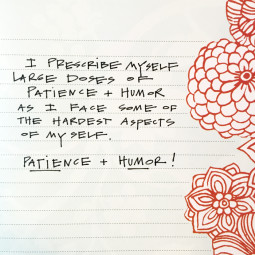 I PRESCRIBE MYSELF
LARGE DOSES OF
PATIENCE + HUMOR
AS I FACE SOME OF
THE HARDEST ASPECTS
OF MY SELF.
PATIENCE + HUMOR!